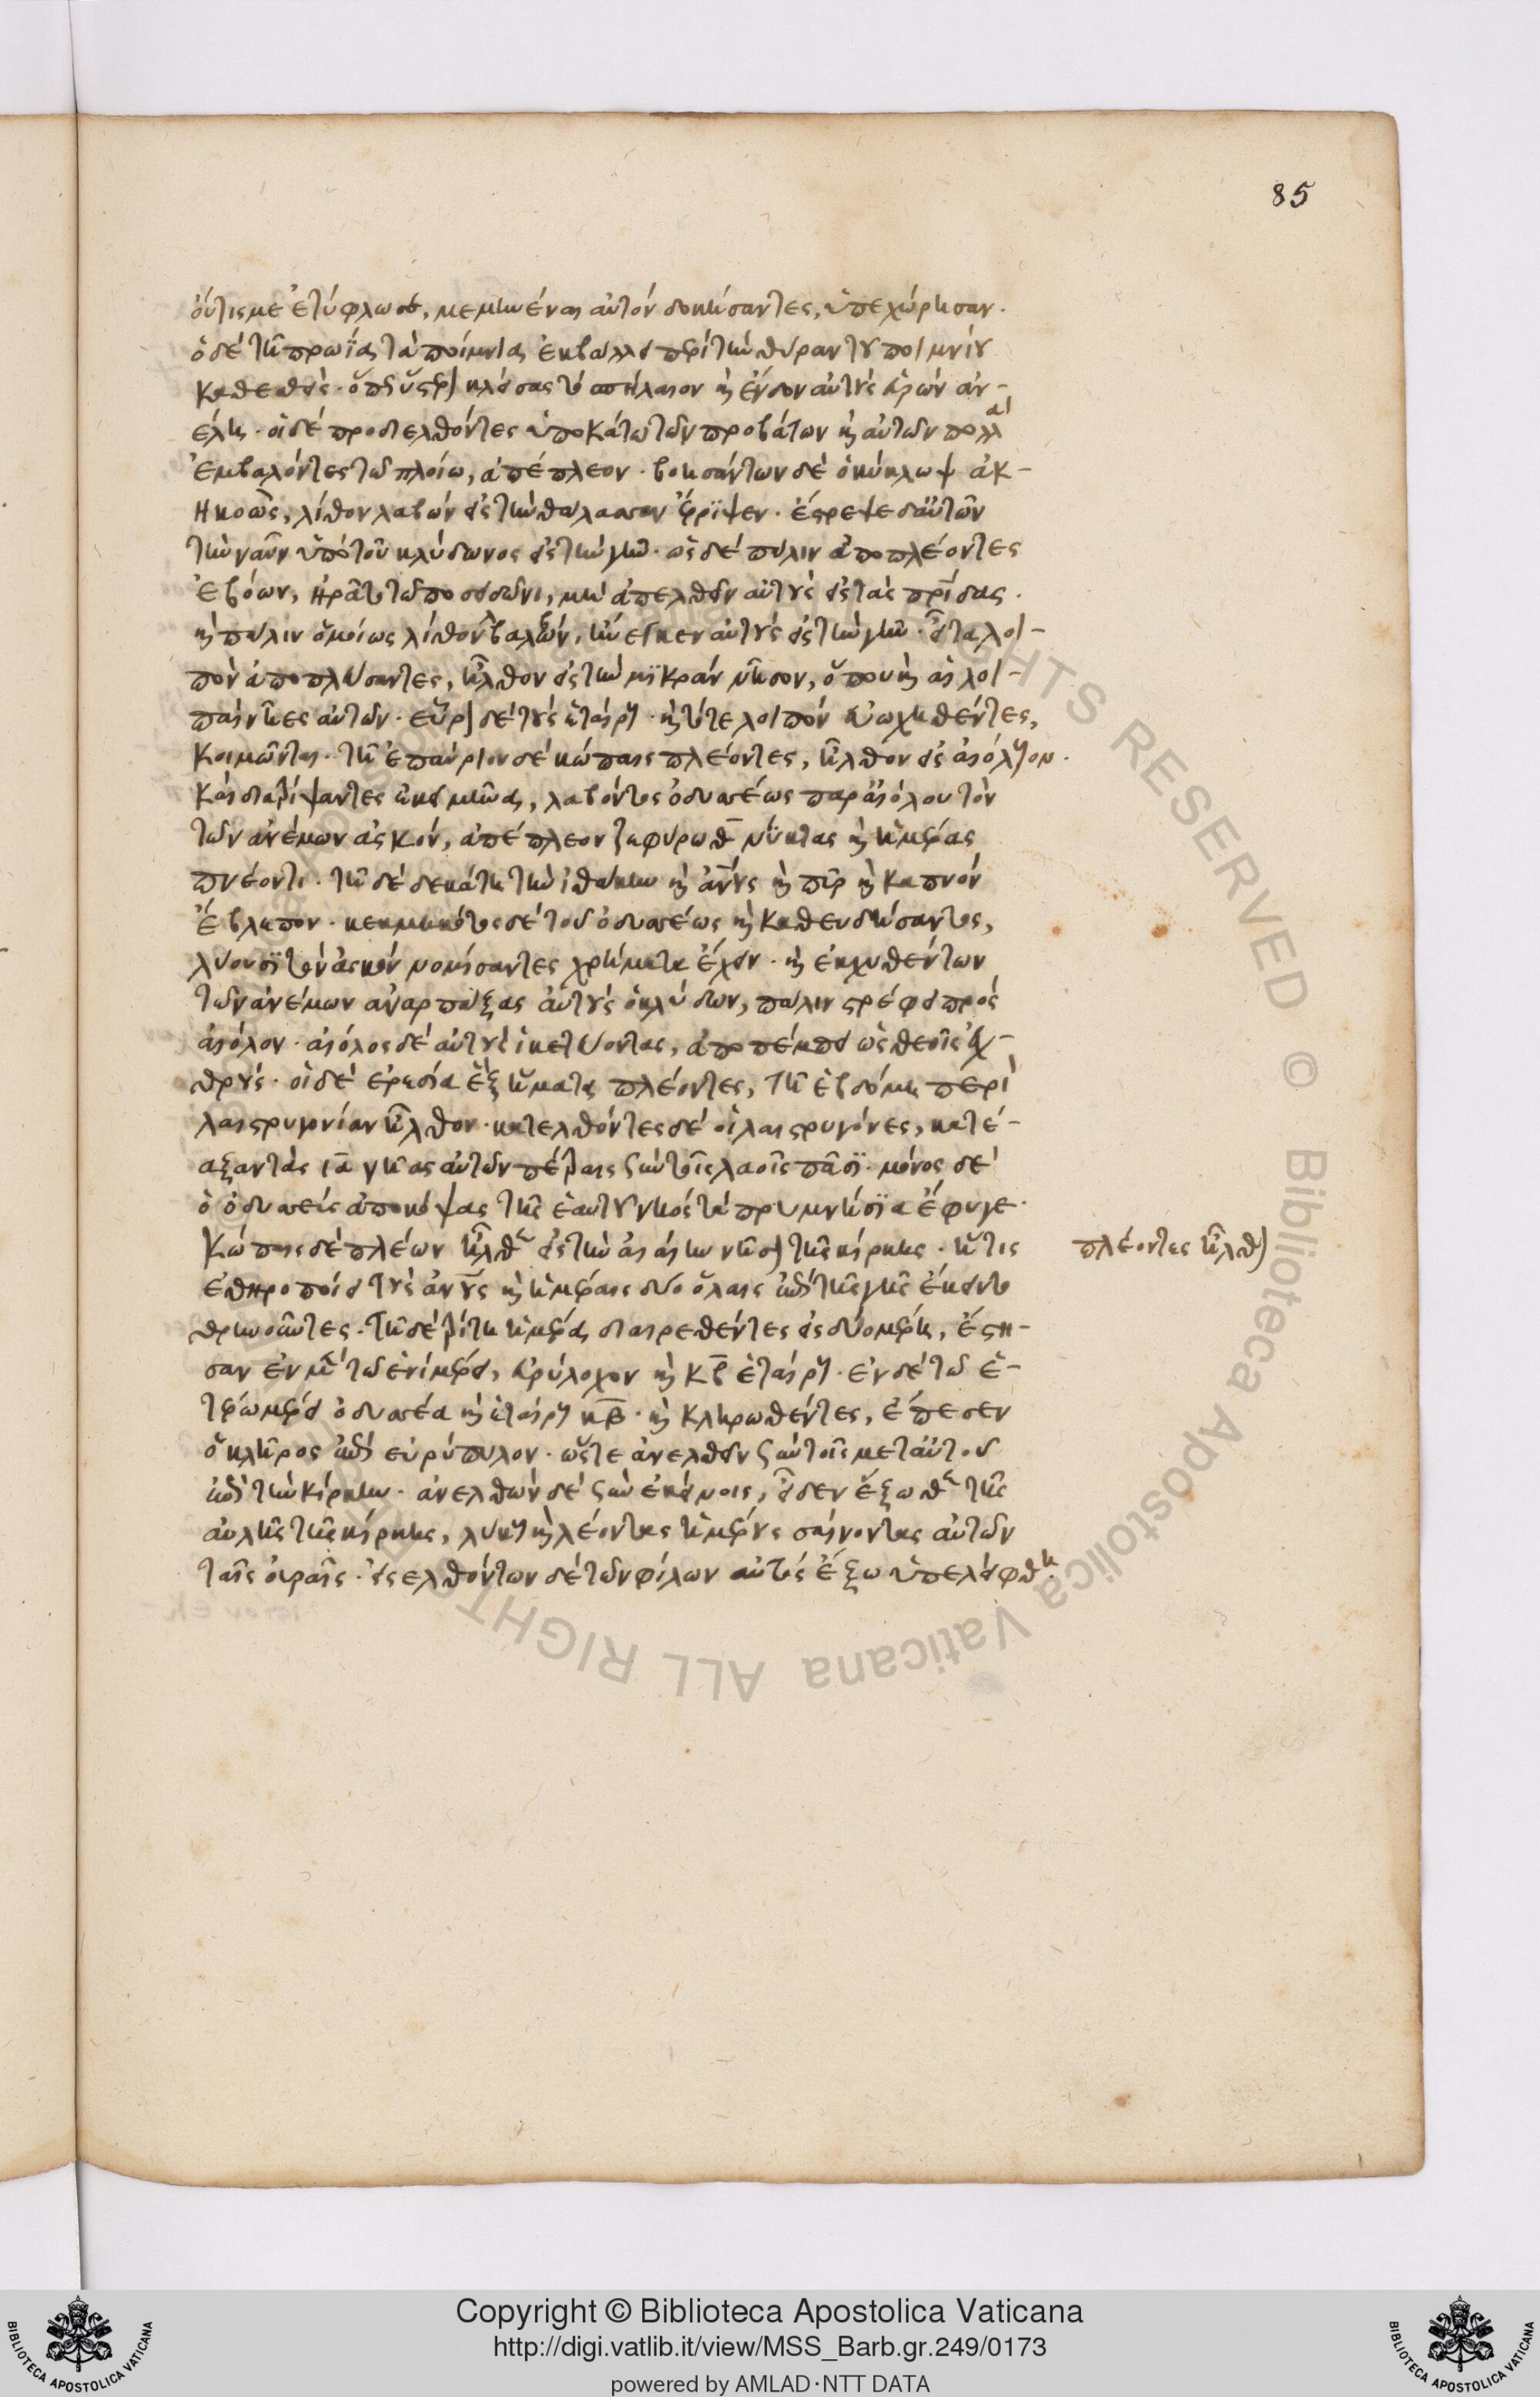 85
οὔτις με ἐτύφλωσε, μεμηνέναι αὐτὸν δοκήσαντες, ὑπεχώρησαν.
ὁ δὲ τῇ πρωΐᾳ τὰ ποίμνια ἐκβάλλει περὶ τὴν θύραν τοῦ ποιμνίου
καθεσθεὶς. ὅπως ὕστερον κλείσας τὸ σπήλαιον καὶ ἔνδον αὐτοὺς εὑρὼν ἀν-
έλῃ. οἱ δὲ προσελθόντες ὑποκάτω τῶν προβάτων καὶ αὐτῶν πολλὰ
ἐμβαλόντες τῷ πλοίῳ, ἀπέπλεον. βοησάντων δὲ ὁ κύκλωψ ἀκ-
ηκοὼς, λίθον λαβὼν εἰς τὴν θάλασσαν ἔρριψεν. ἔστρεψε δ' αὐτῶν
τὴν ναῦν ὑπὸ τοῦ κλύδωνος εἰς τὴν γῆν. ὡς δὲ πάλιν ἀποπλέοντες
ἐβόων, ἠρᾶτο τῷ ποσειδῶνι, μὴ ἀπελθεῖν αὐτοὺς εἰς τὰς πατρίδας.
καὶ πάλιν ὁμοίως λίθον βαλὼν, ἤνεγκεν αὐτοὺς εἰς τὴν γῆν. εἶτα λοι-
πὸν ἀποπλεύσαντες, ἦλθον εἰς τὴν μικρὰν νῆσον, ὅπου καὶ αἱ λοι-
παὶ νῆες αὐτῶν. εὗρον δὲ τοὺς ἑταίρους. καὶ τότε λοιπὸν εὐωχηθέντες,
κοιμῶνται. τῇ ἐπαύριον δὲ κώπαις πλέοντες, ἦλθον εἰς αἰόλιον.
καὶ διατρίψαντες ἐκεῖ μῆνα, λαβόντος ὀδυσσέως παρ' αἰόλου τὸν
τῶν ἀνέμων ἀσκόν, ἀπέπλεον ζεφύρῳ θ νύκτας καὶ ἡμέρας
πνέοντι. τῇ δὲ δεκάτῃ τὴν ἰθάκην καὶ ἀνους καὶ πῦρ καὶ καπνὸν
ἔβλεπον. κεκμηκότος δὲ τοῦ ὀδυσσέως καὶ καθευδήσαντος,
λύουσι τὸν ἀσκὸν νομίσαντες χρήματα ἔχειν. καὶ ἐκχυθέντων
τῶν ἀνέμων ἀναρπάξας αὐτοὺς ὁ κλύδων, πάλιν στρέφει πρὸς
αἰόλον. αἰόλος δὲ αὐτοὺς ἱκετεύοντας, ἀποπέμπει ὡς θεοῖς ἐχ-
θρούς. οἱ δὲ εἰρεσίᾳ ἓξ ἤματα πλέοντες, τῇ ἑβδόμῃ περὶ
λαιστρυγονίαν ἦλθον. κατελθόντες δὲ οἱ λαιστρυγόνες, κατέ-
αξαν τὰς ια νῆας αὐτῶν πέτραις σὺν τοῖς λαοῖς πᾶσι. μόνος δὲ
ὁ ὀδυσσεὺς ἀποκόψας τῆς ἑαυτοῦ νηὸς τὰ πρυμνήσια ἔφυγε.
κώπαις δὲ πλέων ἦλθεν εἰς τὴν αἰαίην νῆσον τῆς κίρκης. ἥτις
πλέοντες ἦλθον
ἐθηροποίει τοὺς ἀνους καὶ ἡμέραις δύο ὅλαις ἐπὶ τῆς γῆς ἔκειντο
θρηνοῦντες. τῇ δὲ τρίτῃ ἡμέρᾳ διαιρεθέντες εἰς δύο μέρη, ἔστη-
σαν ἐν μὲν τῷ ἑνὶ μέρει, εὐρύλοχον καὶ κβ ἑταίρους. ἐν δὲ τῷ ἑ-
τέρῳ μέρει ὀδυσσέα καὶ ἑταίρους κβ. καὶ κληρωθέντες, ἔπεσεν
ὁ κλῆρος ἐπὶ εὐρύπυλον. ὥστε ἀνελθεῖν σὺν τοῖς μετ' αὐτοῦ
ἐπὶ τὴν κίρκην. ἀνελθὼν δὲ σὺν ἐκείνοις, εἶδεν ἔξωθεν τῆς
αὐλῆς τῆς κίρκης, λύκους καὶ λέοντας ἡμέρους σαίνοντας αὐτῶν
ταῖς οὐραῖς. εἰσελθόντων δὲ τῶν φίλων αὐτὸς ἔξω ὑπελείφθη.
Copyright © Biblioteca Apostolica Vaticana
http://digi.vatlib.it/view/MSS_Barb.gr.249/0173
powered by AMLAD·NTT DATA